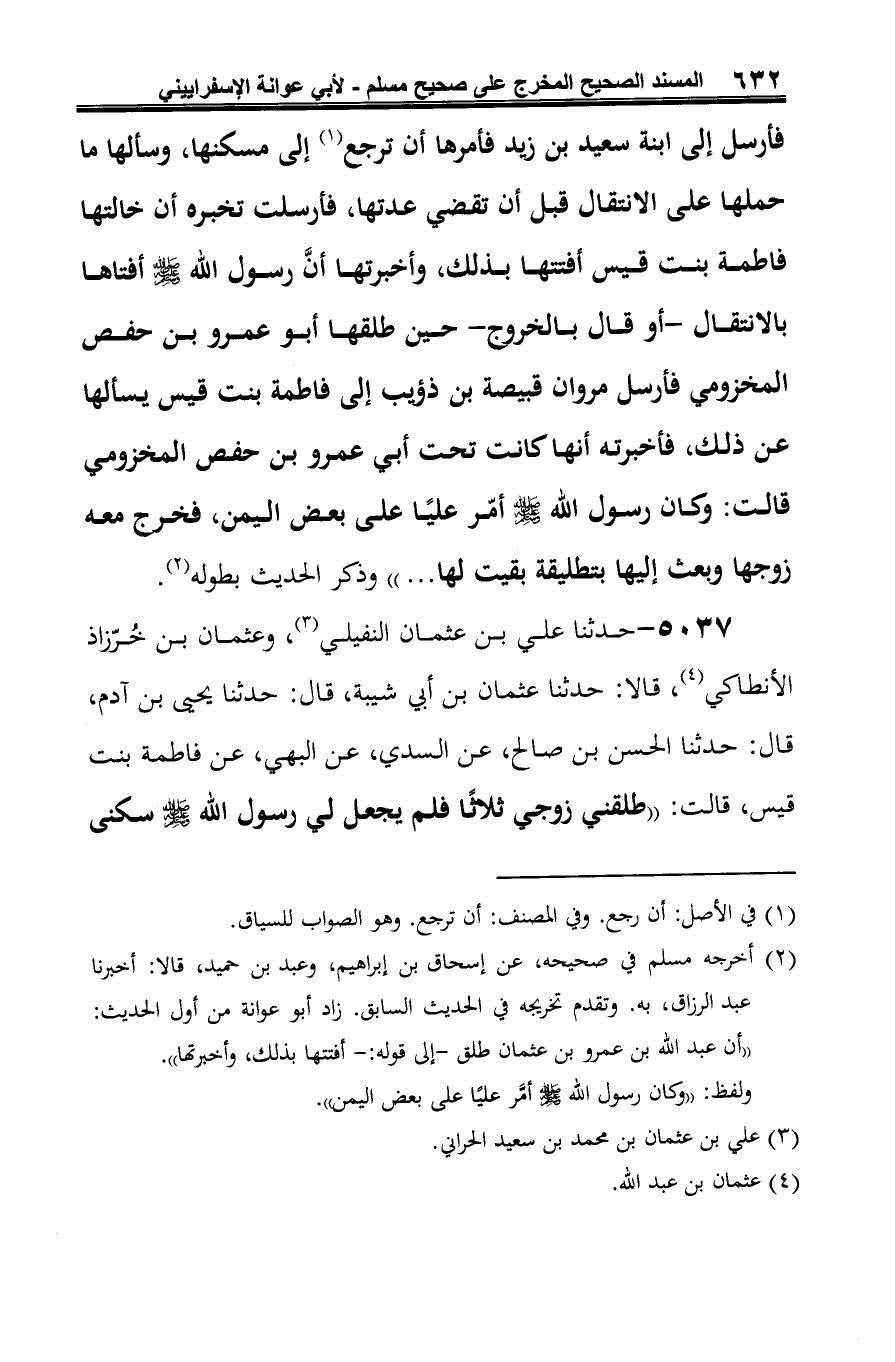 ٦٣٢ المسند الصحيح المخرج على صحيح مسلم - لأبي عوانة الإسفراييني
فأرسل إلى ابنة سعيد بن زيد فأمرها أن ترجع(١) إلى مسكنها، وسألها ما
حملها على الانتقال قبل أن تقضي عدتها، فأرسلت تخبره أن خالتها
فاطمة بنت قيس أفتتها بذلك، وأخبرتها أنَّ رسول الله ﷺ أفتاها
بالانتقال -أو قال بالخروج- حين طلقها أبو عمرو بن حفص
المخزومي فأرسل مروان قبيصة بن ذؤيب إلى فاطمة بنت قيس يسألها
عن ذلك، فأخبرته أنها كانت تحت أبي عمرو بن حفص المخزومي
قالت: وكان رسول الله ﷺ أمّر عليًا على بعض اليمن، فخرج معه
زوجها وبعث إليها بتطليقة بقيت لها... )) وذكر الحديث بطوله(٢).
٥٠٣٧-حدثنا علي بن عثمان النفيلي(٣)، وعثمان بن خُرّزاذ
الأنطاكي(٤)، قالا: حدثنا عثمان بن أبي شيبة، قال: حدثنا يحيى بن آدم،
قال: حدثنا الحسن بن صالح، عن السدي، عن البهي، عن فاطمة بنت
قيس، قالت: ((طلقني زوجي ثلاثًا فلم يجعل لي رسول الله ﷺ سكنى
(١) في الأصل: أن رجع. وفي المصنف: أن ترجع. وهو الصواب للسياق.
(٢) أخرجه مسلم في صحيحه، عن إسحاق بن إبراهيم، وعبد بن حميد، قالا: أخبرنا
عبد الرزاق، به. وتقدم تخريجه في الحديث السابق. زاد أبو عوانة من أول الحديث:
((أن عبد الله بن عمرو بن عثمان طلق -إلى قوله:- أفتتها بذلك، وأخبرتها)).
ولفظ: ((وكان رسول الله ﷺ أمَّر عليًا على بعض اليمن)).
(٣) علي بن عثمان بن محمد بن سعيد الحراني.
(٤) عثمان بن عبد الله.